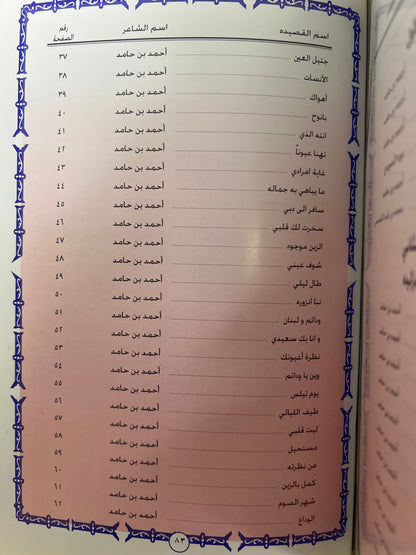 اسم القصيده اسم الشاعر رقم الصفحة
جتيل العين أحمد بن حامد ٣٧
الأنسات أحمد بن حامد ٣٨
أهواك أحمد بن حامد ٣٩
بانوح أحمد بن حامد ٤٠
انته الذي أحمد بن حامد ٤١
نهنا عيوناً أحمد بن حامد ٤٢
غاية امرادي أحمد بن حامد ٤٣
ما يباهي به جماله أحمد بن حامد ٤٤
سافر الى دبي أحمد بن حامد ٤٥
سخرت لك قلبي أحمد بن حامد ٤٦
الزين موجود أحمد بن حامد ٤٧
شوف عيني أحمد بن حامد ٤٨
طال ليلي أحمد بن حامد ٤٩
نبا انزوره أحمد بن حامد ٥٠
ودائم و لبنان أحمد بن حامد ٥١
و انا بك سعيدي أحمد بن حامد ٥٢
نظرة أعيونك أحمد بن حامد ٥٣
وين يا ودائم أحمد بن حامد ٥٤
يوم تيلس أحمد بن حامد ٥٥
طيف الليالي أحمد بن حامد ٥٦
ليت قلبي أحمد بن حامد ٥٧
مستحيل أحمد بن حامد ٥٨
من نظرته أحمد بن حامد ٥٩
كمل بالزين أحمد بن حامد ٦٠
شهر الصوم أحمد بن حامد ٦١
الوداع أحمد بن حامد ٦٢
٨٣